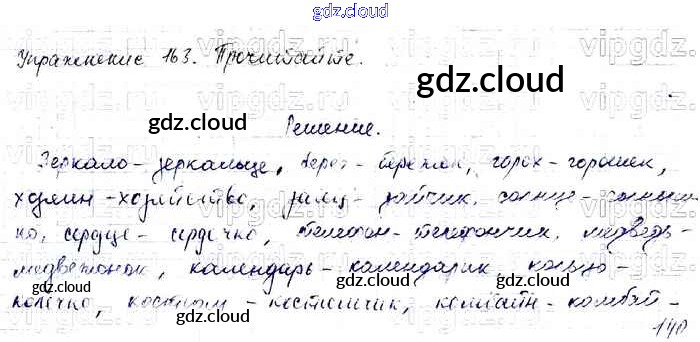 gdz.cloud
Упражнение 163. Прочитайте.
gdz.cloud
gdz.cloud
Решение.
Зеркало - зеркальце, берег - бережок, горох - горошек,
хозяин - хозяйство, заяц - зайчик, солнце - солныш-
ко, сердце - сердечко, телефон - телефончик, медведь -
медвежонок, календарь - календарик кольцо -
колечко, костюм - костюмчик, комбайн - комбай-
gdz.cloud
gdz.cloud
140